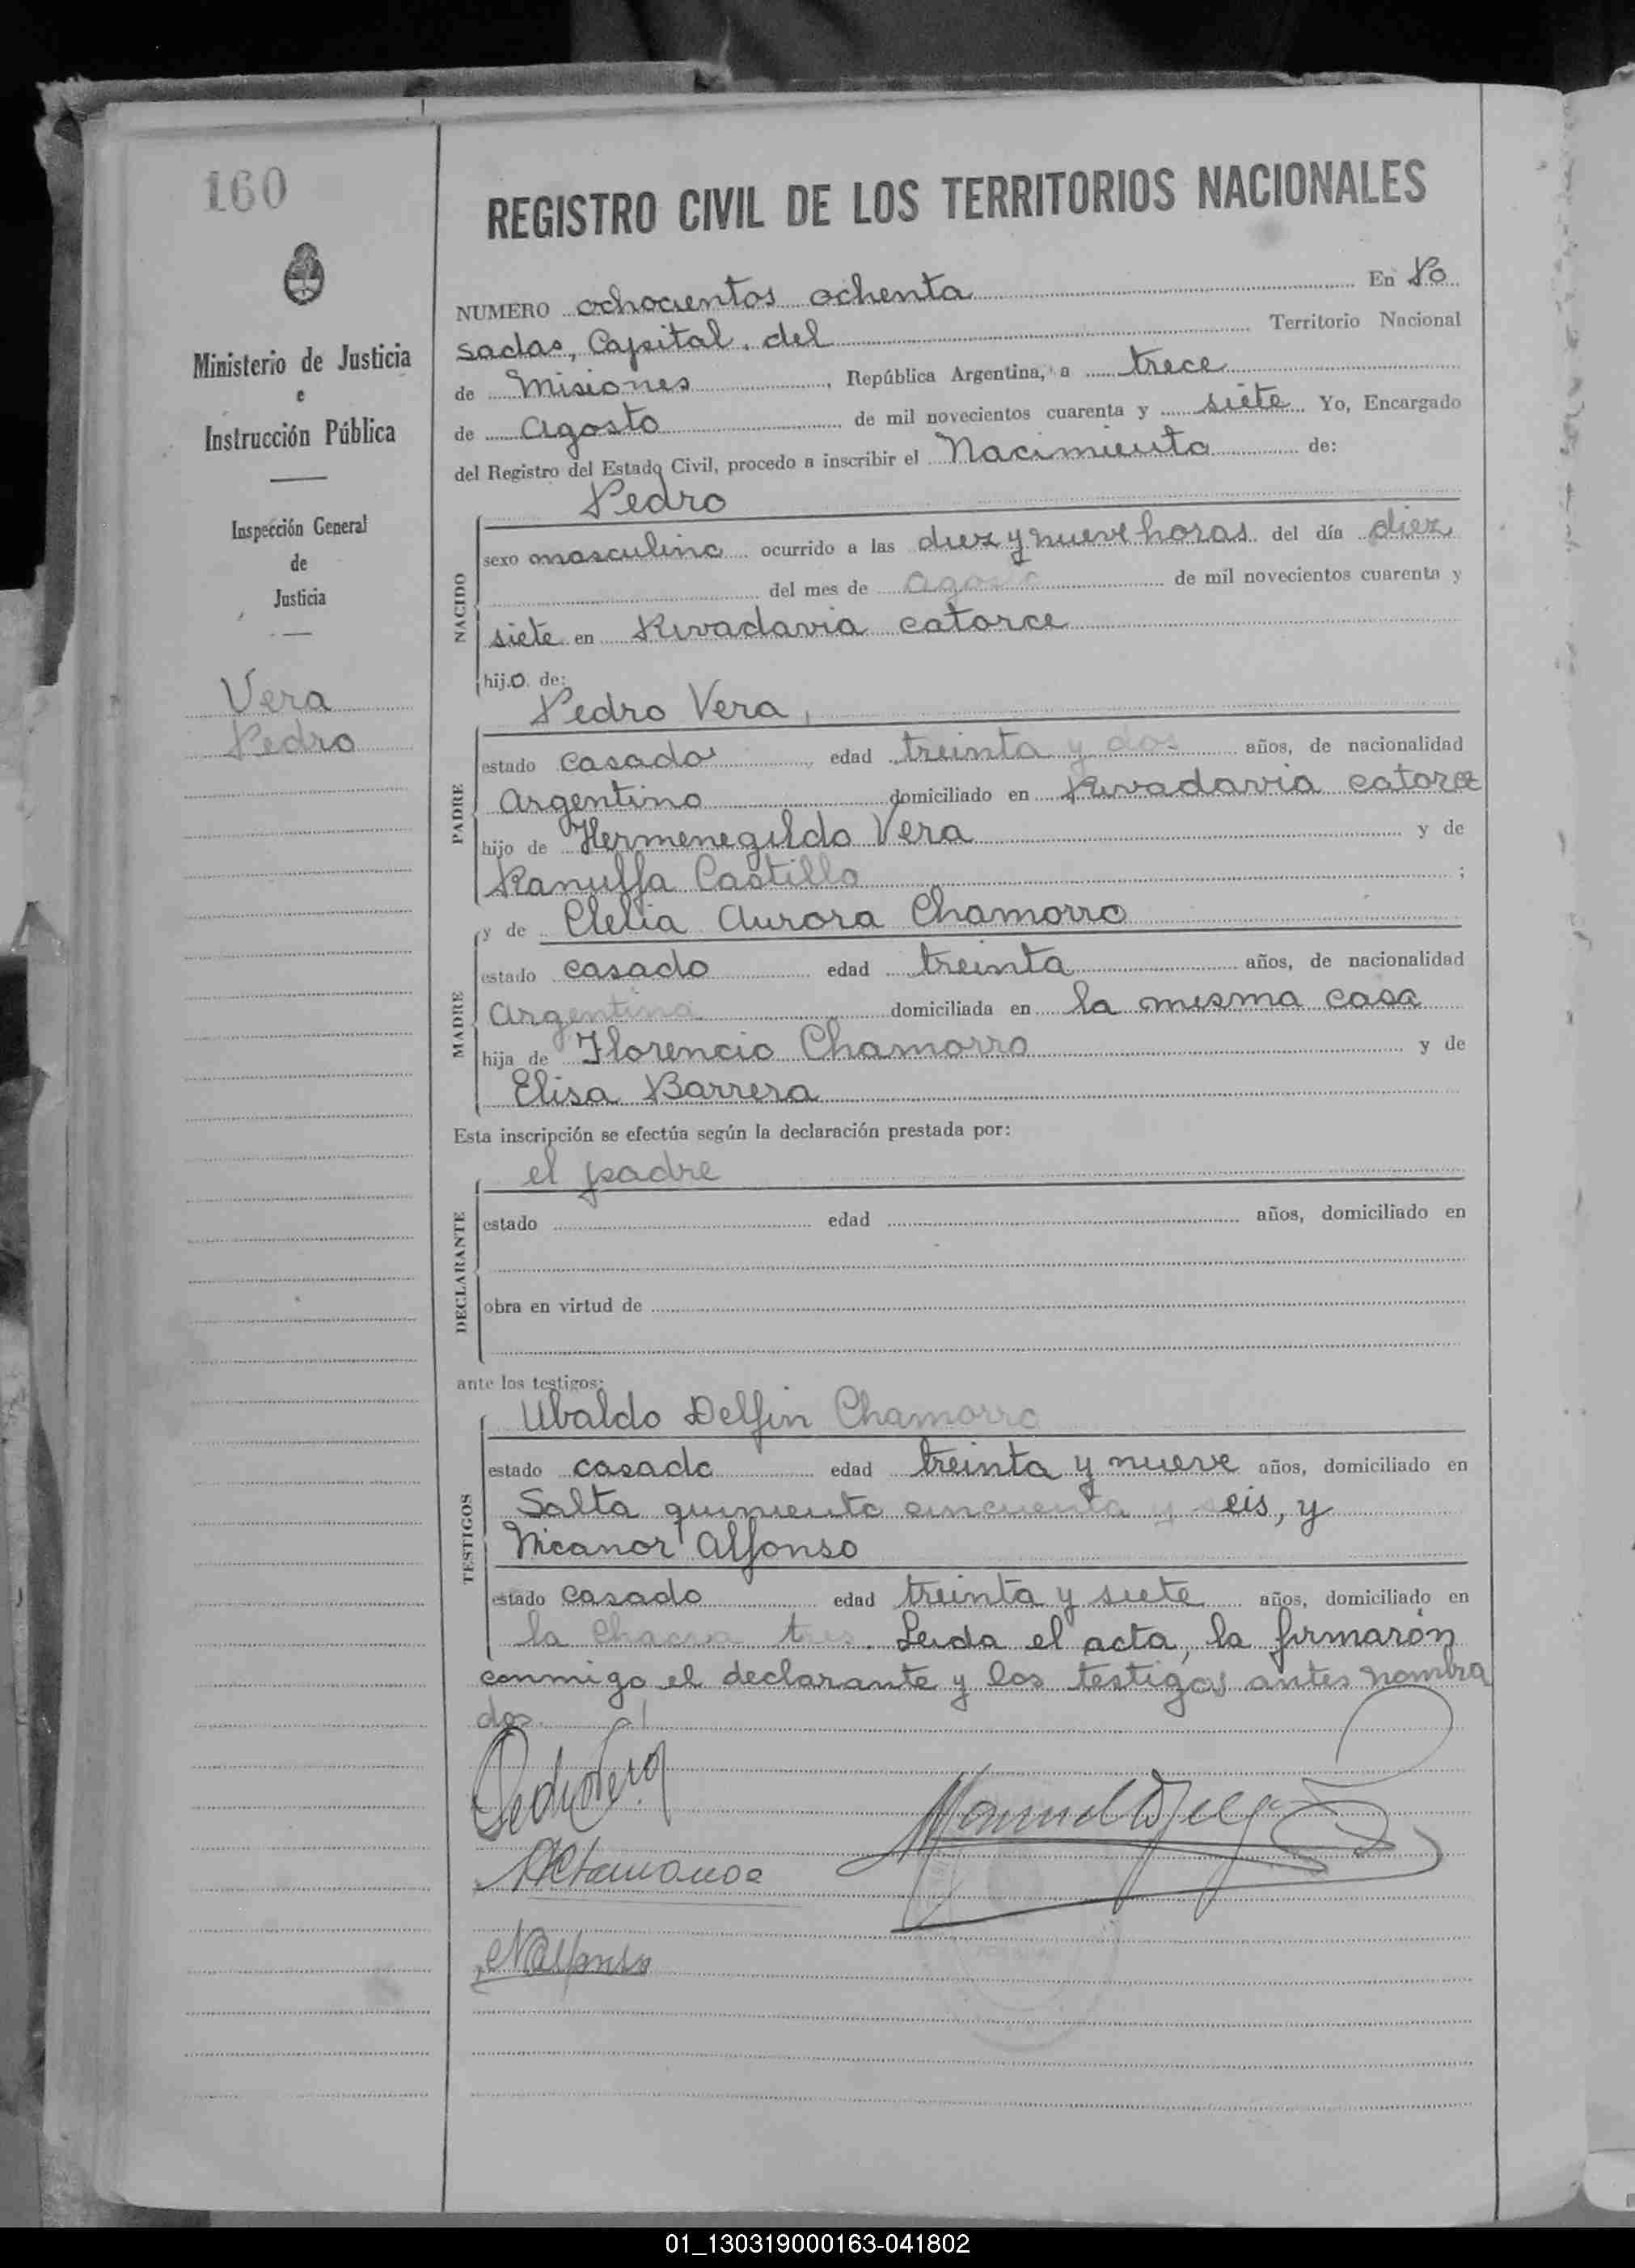 160
Ministerio de Justicia
e
Instrucción Pública
Inspección General
de
Justicia
Vera
Pedro
REGISTRO CIVIL DE LOS TERRITORIOS NACIONALES
NUMERO ochocientos ochenta En Po
sadas, Capital, del Territorio Nacional
de Misiones, República Argentina, a trece
de Agosto de mil novecientos cuarenta y siete Yo, Encargado
del Registro del Estado Civil, procedo a inscribir el Nacimiento de:
Pedro
NACIDO
sexo masculino ocurrido a las diez y nueve horas del día diez
del mes de Agosto de mil novecientos cuarenta y
siete en Rivadavia catorce
hijo de:
Pedro Vera,
PADRE
estado casado, edad treinta y dos años, de nacionalidad
Argentino domiciliado en Rivadavia catorce
hijo de Hermenegildo Vera y de
Ranulfa Castillo;
y de Clelia Aurora Chamorro
MADRE
estado casado edad treinta años, de nacionalidad
Argentina domiciliada en la misma casa
hija de Florencio Chamorro y de
Elisa Barrera
Esta inscripción se efectúa según la declaración prestada por:
el padre
DECLARANTE
estado edad años, domiciliado en
obra en virtud de
ante los testigos:
Ubaldo Delfin Chamorro
TESTIGOS
estado casado edad treinta y nueve años, domiciliado en
Salta quiniento cincuenta y seis, y
Nicanor Alfonso
estado casado edad treinta y siete años, domiciliado en
la Chacra tres. Leida el acta, la firmarón
conmigo el declarante y los testigos antes nombra
dos.
Pedro Vera
NAlfonso
01_130319000163-041802